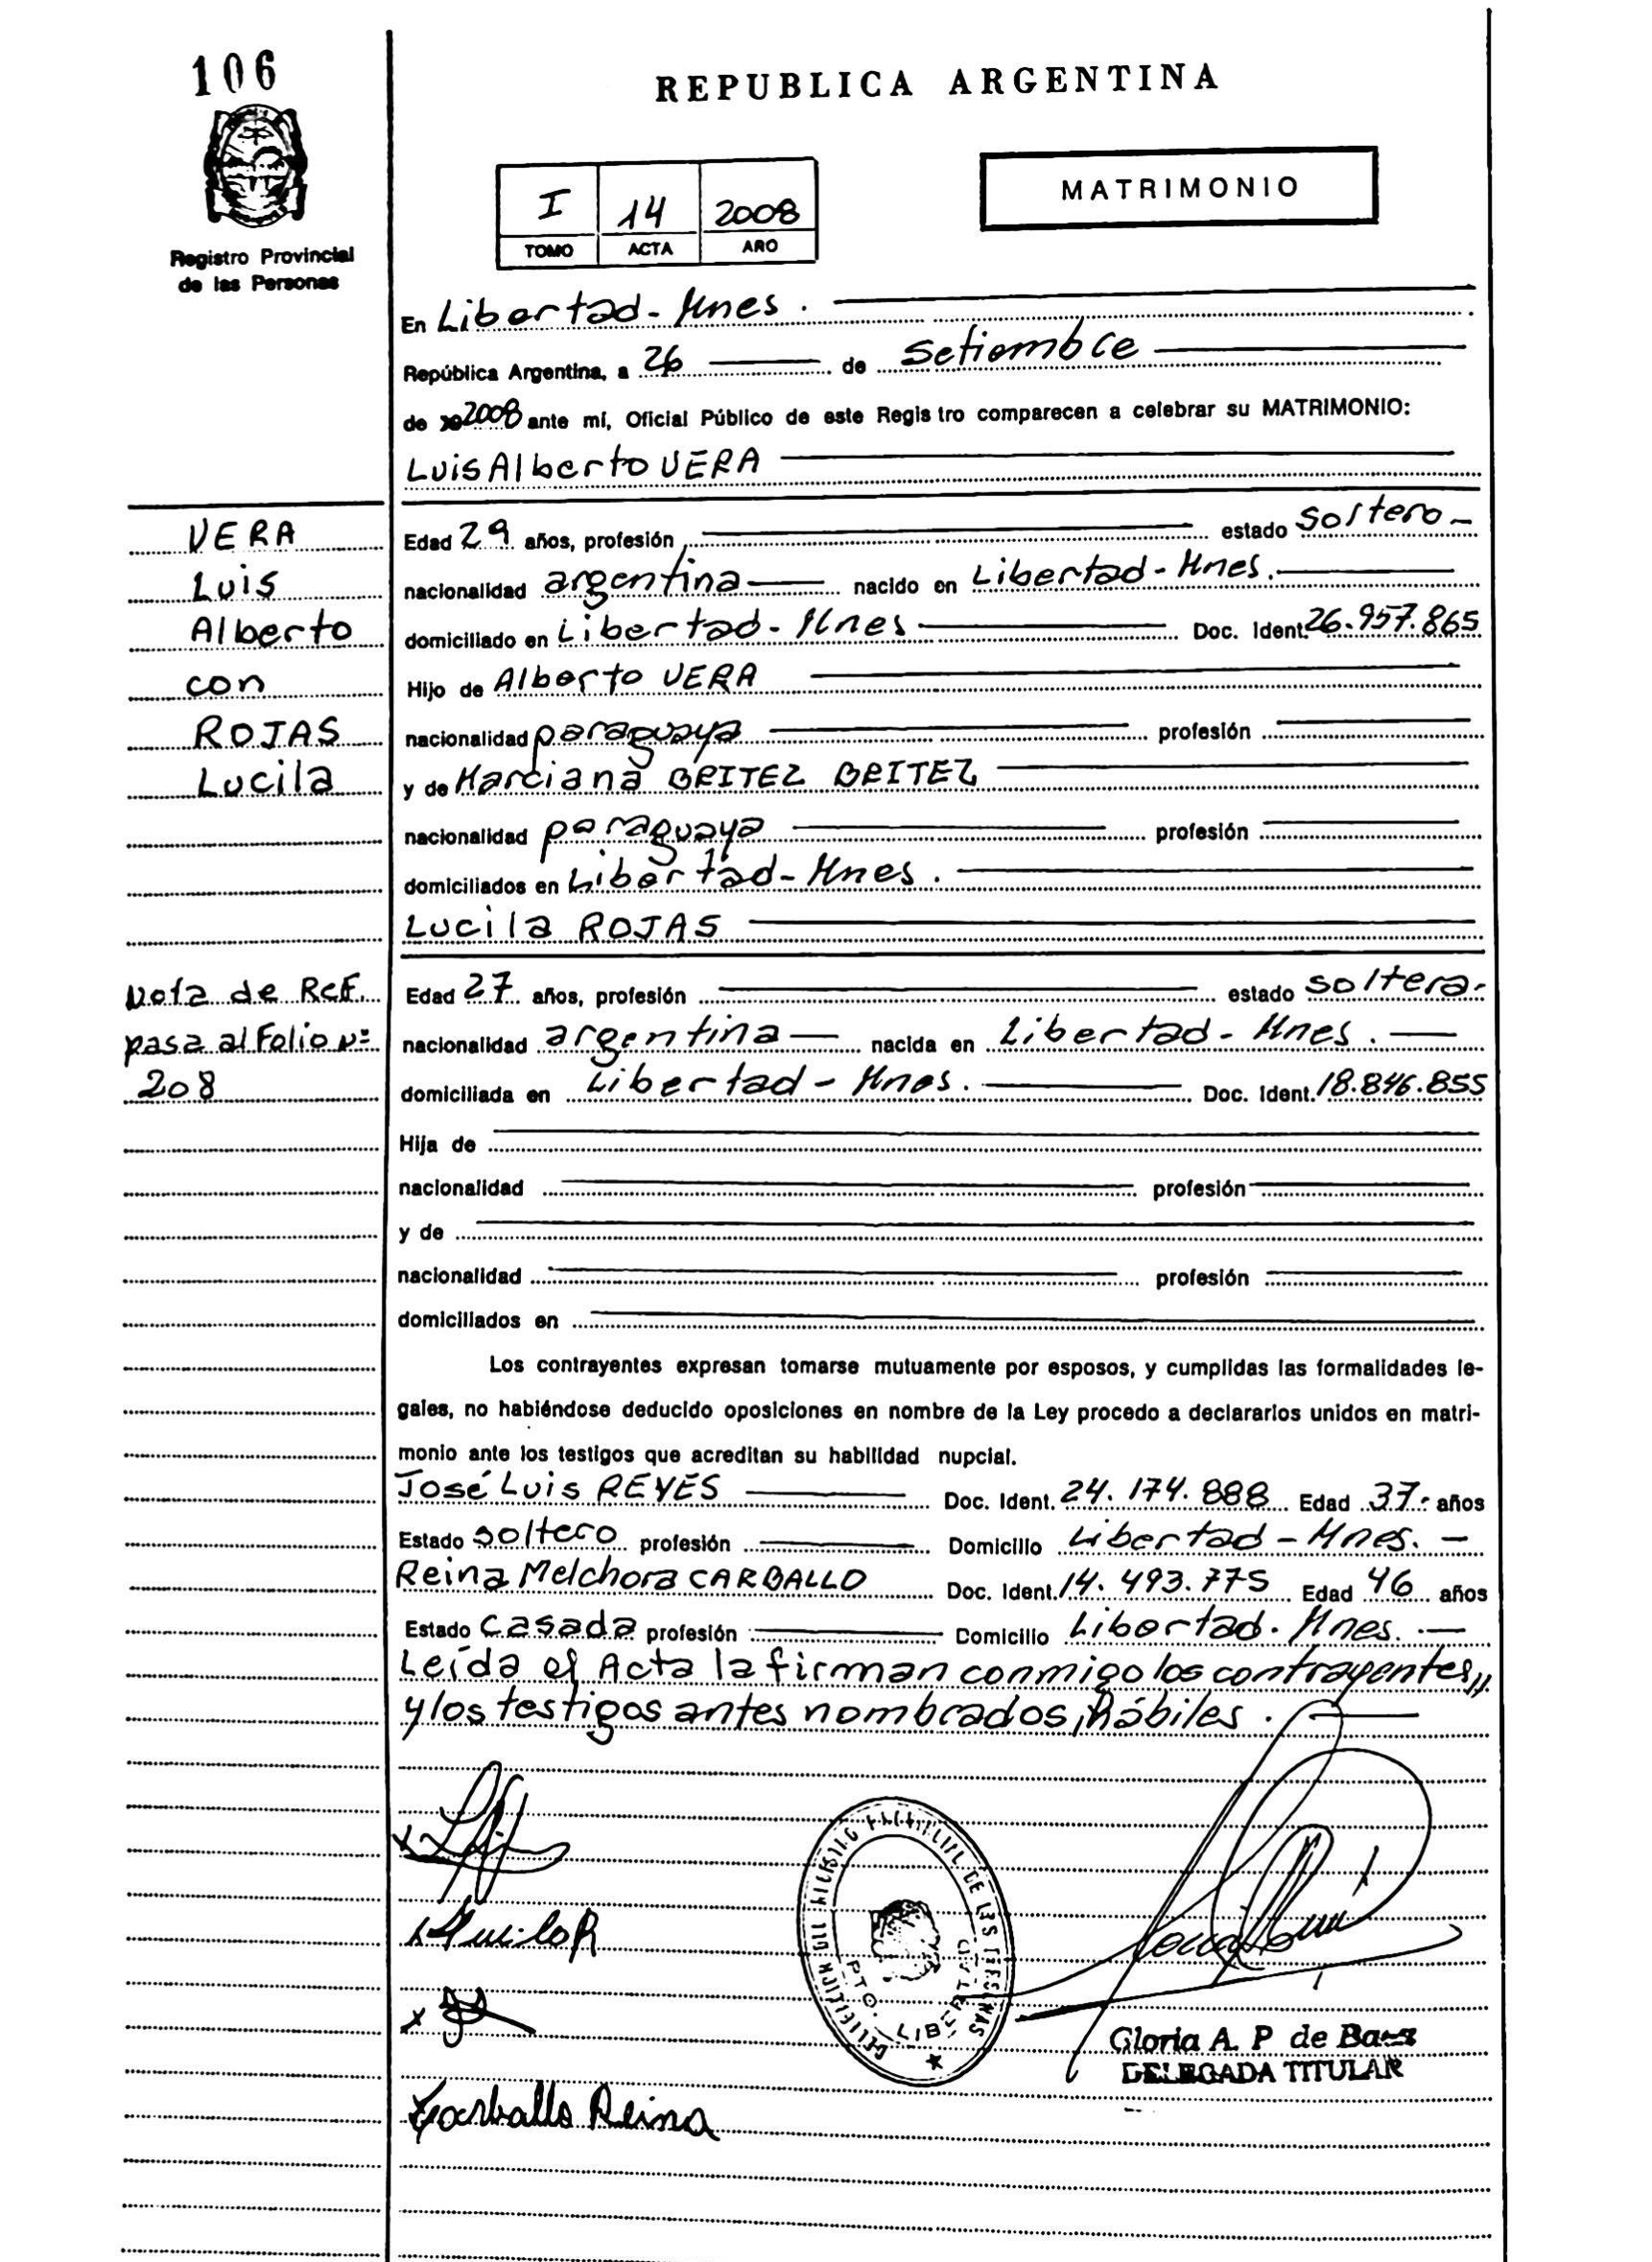 106
REPUBLICA ARGENTINA
MATRIMONIO
I 14 2008
TOMO ACTA AÑO
Registro Provincial
de las Personas
En Libertad - Mnes.
República Argentina, a 26 de Setiembre
de 2008 ante mí, Oficial Público de este Registro comparecen a celebrar su MATRIMONIO:
Luis Alberto VERA
VERA
Luis
Alberto
con
ROJAS
Lucila
Edad 29 años, profesión estado soltero-
nacionalidad argentina nacido en Libertad - Mnes.
domiciliado en Libertad - Mnes Doc. Ident. 26.957.865
Hijo de Alberto VERA
nacionalidad paraguaya profesión
y de Marciana BRITEZ BRITEZ
nacionalidad paraguaya profesión
domiciliados en Libertad - Mnes.
Lucila ROJAS
Nota de Ref.
pasa al Folio Nº
208
Edad 27 años, profesión estado soltera.
nacionalidad argentina nacida en Libertad - Mnes.
domiciliada en Libertad - Mnes. Doc. Ident. 18.846.855
Hija de
nacionalidad profesión
y de
nacionalidad profesión
domiciliados en
Los contrayentes expresan tomarse mutuamente por esposos, y cumplidas las formalidades le-
gales, no habiéndose deducido oposiciones en nombre de la Ley procedo a declararlos unidos en matri-
monio ante los testigos que acreditan su habilidad nupcial.
José Luis REYES Doc. Ident. 24.174.888 Edad 37 años
Estado soltero profesión Domicilio Libertad - Mnes.
Reina Melchora CARBALLO Doc. Ident. 14.493.775 Edad 46 años
Estado casada profesión Domicilio Libertad. Mnes.
Leída el Acta la firman conmigo los contrayentes,,
y los testigos antes nombrados, hábiles.
DE LAS PERSONAS
PTO. LIBERTAD
Gloria A. P de Baez
DELEGADA TITULAR
Carballo Reina